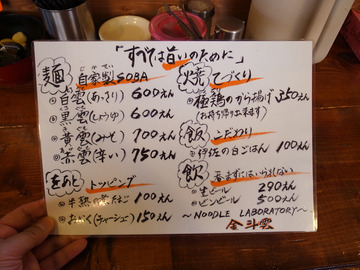 「すべては旨いのために」
麺 自家製SOBA
白雲(あっさり) 600えん
黒雲(しょうゆ) 600えん
黄雲(みそ) 700えん
赤雲(辛い) 750えん
トッピング
半熟の煮たまご 100えん
(チャーシュー) 150えん
焼 てづくり
極鶏のから揚げ 350えん
(お持ち帰り出来ます)
飯 こだわり
伊佐の白ごはん 100えん
飲 呑まずにはいられない
生ビール 290えん
ビンビール 500えん
～NOODLE LABORATORY～
金斗雲